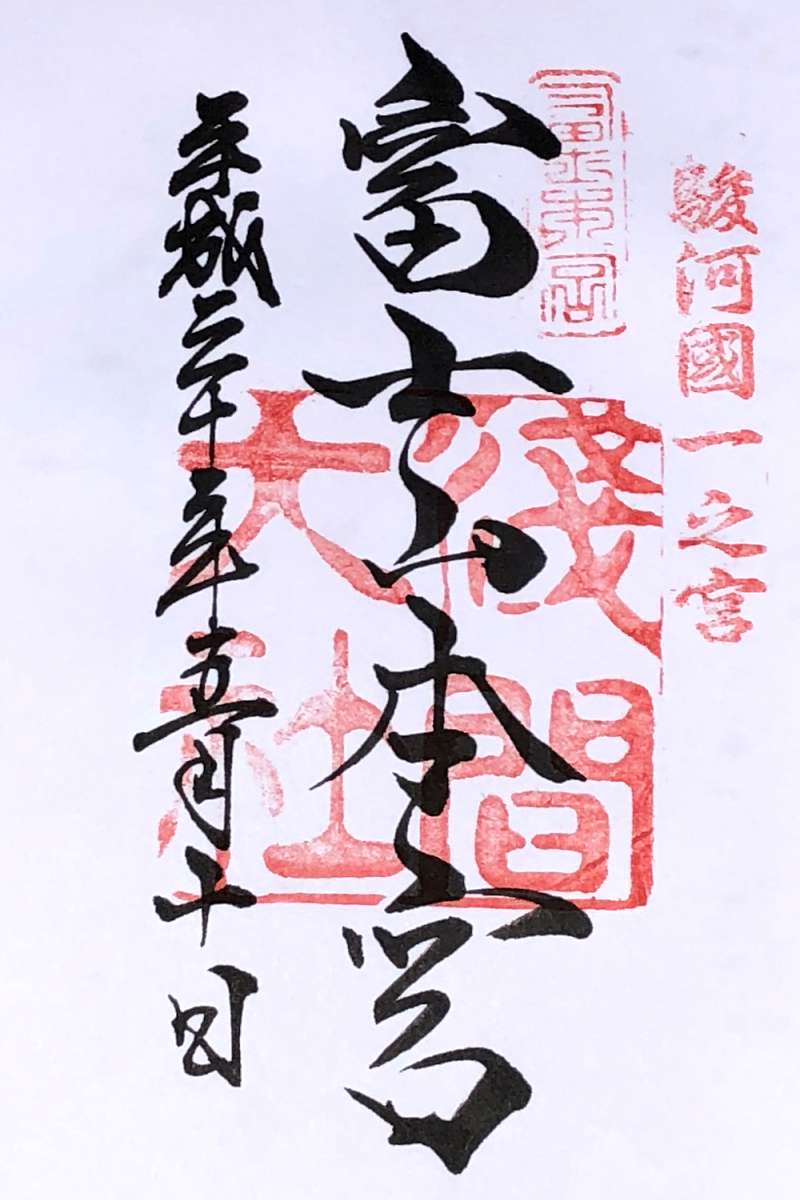 駿河國一之宮
富士山本宮
淺間大社
平成三十年五月十日